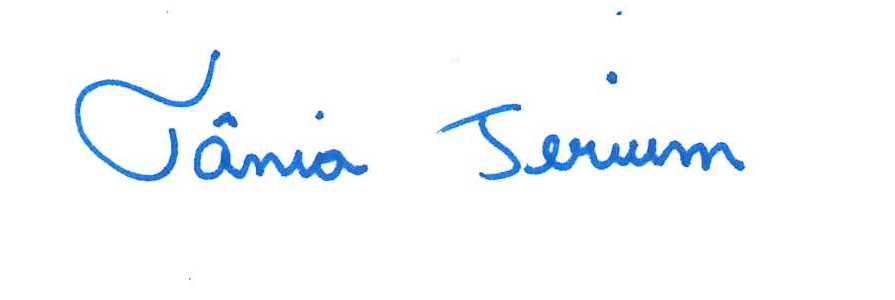 Tânia Jerium